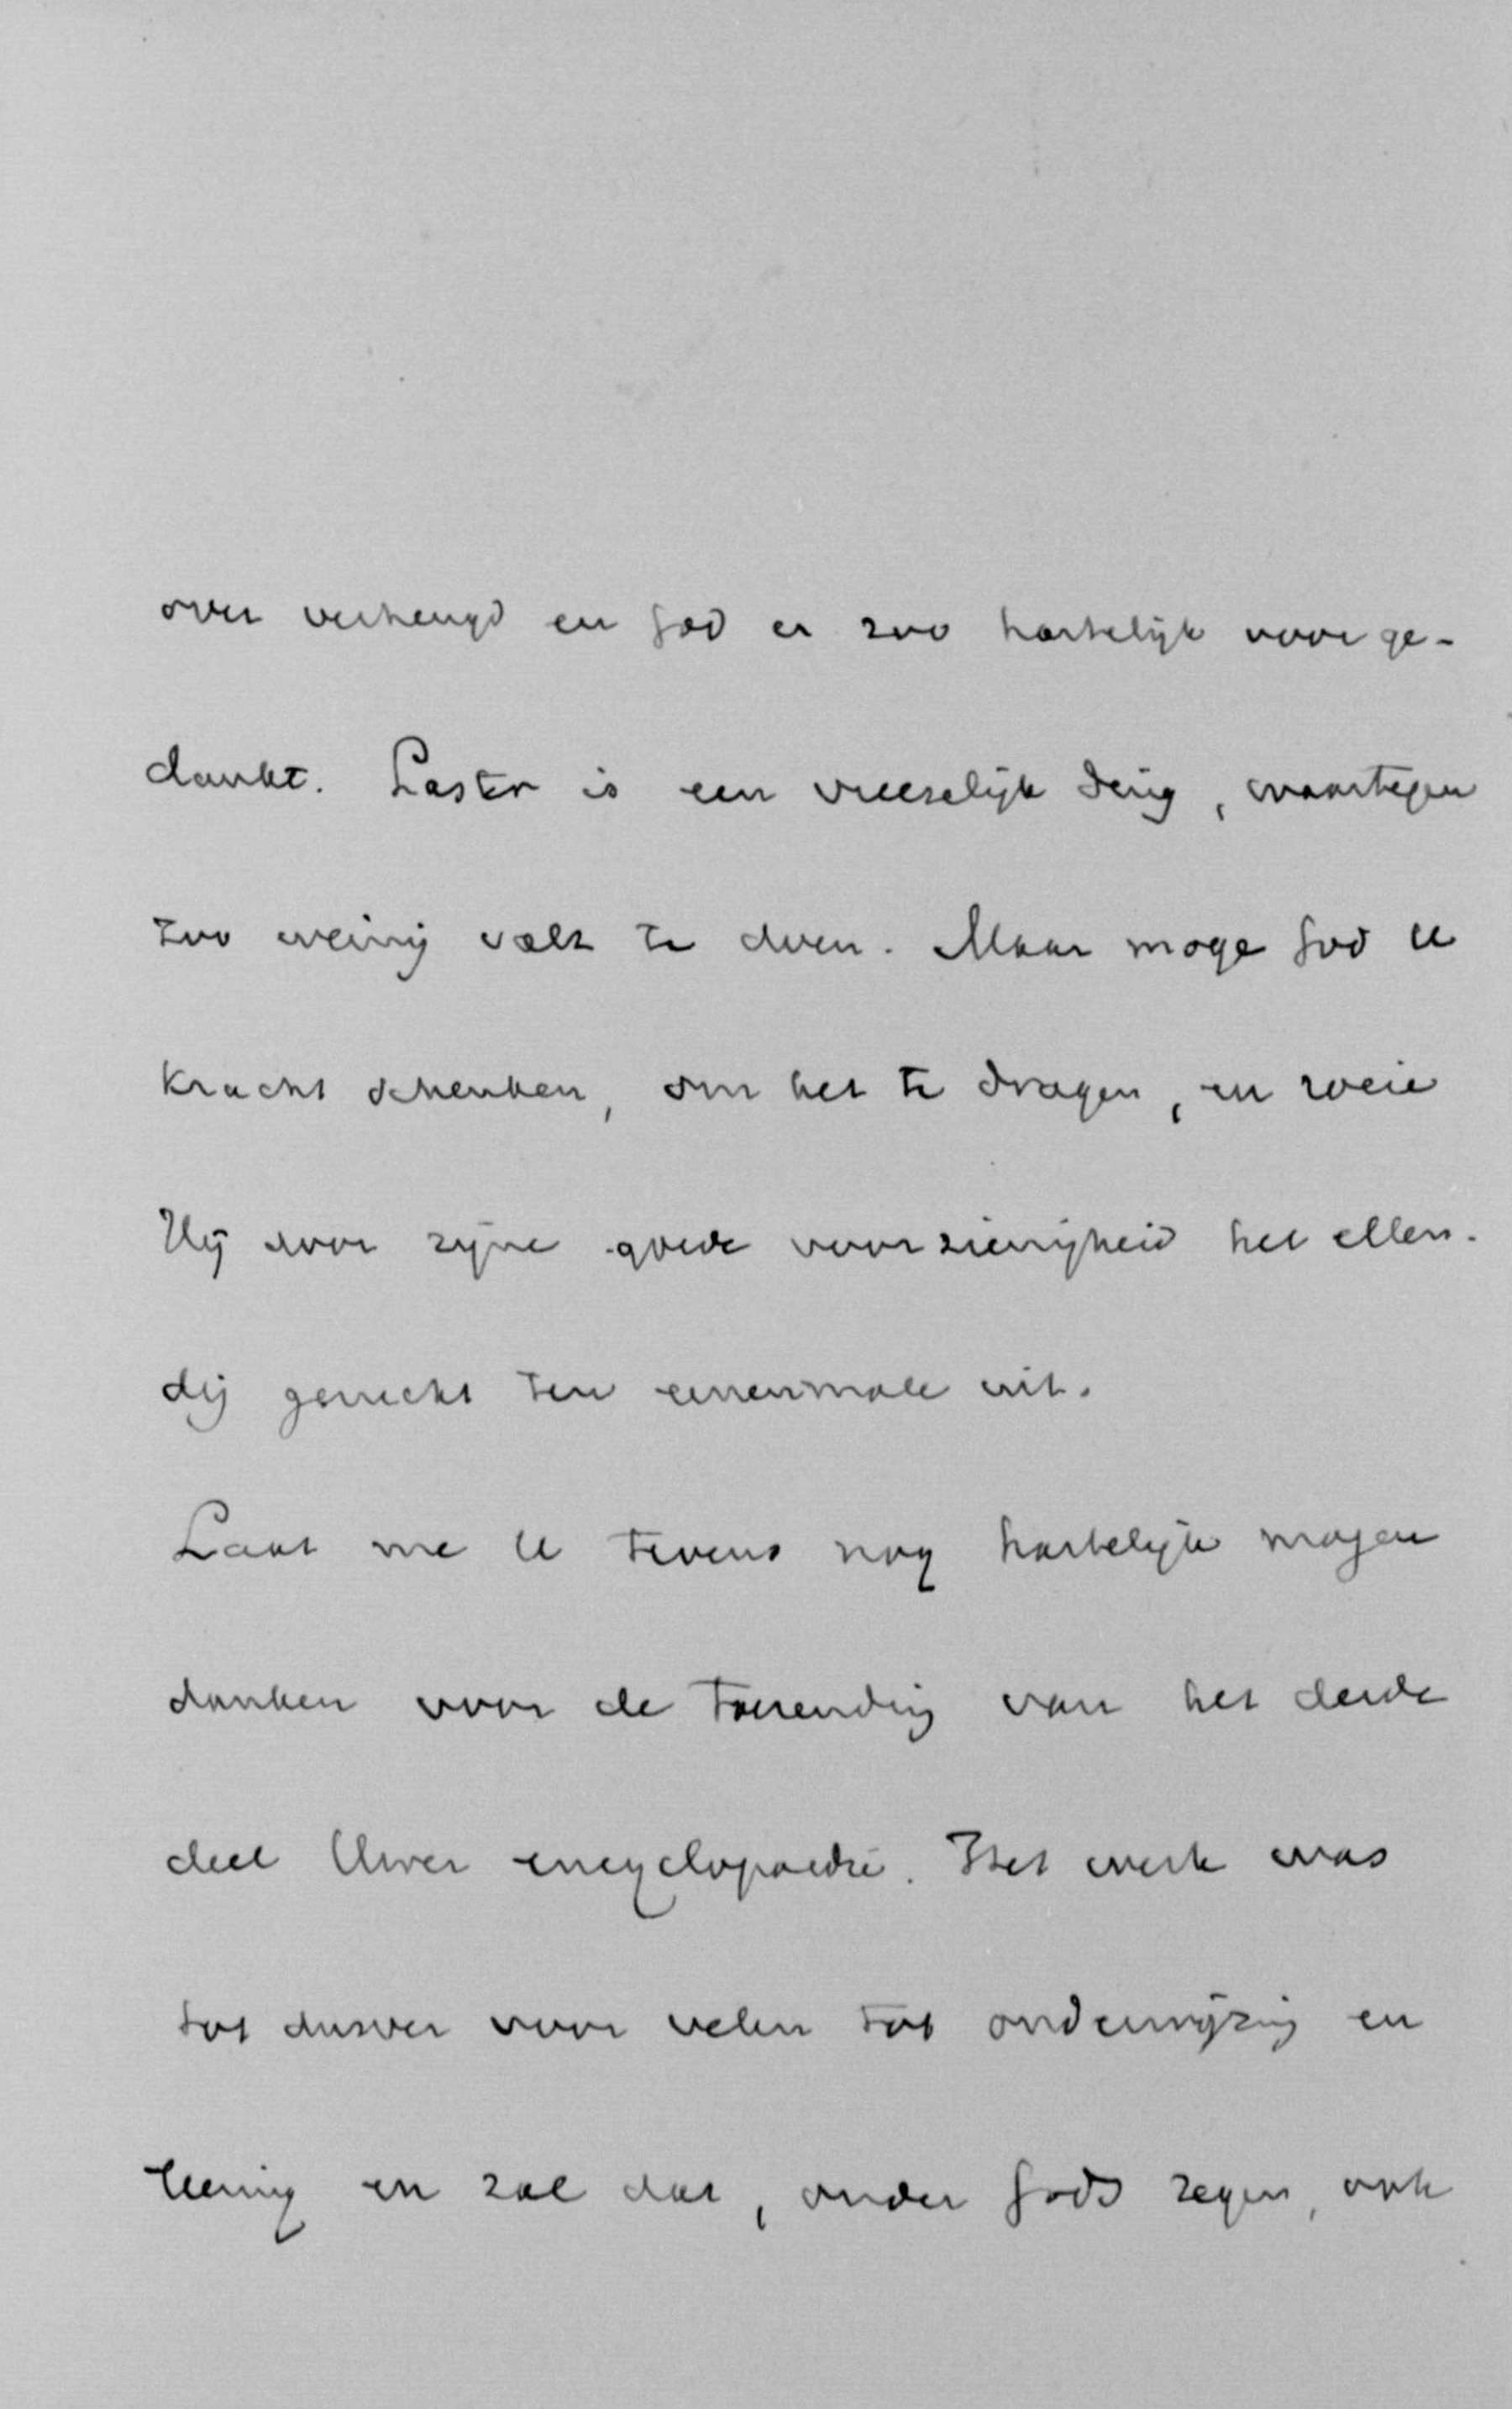 over verheugd en God er zoo hartelijk voor ge-
dankt. Laster is een vreeselijk ding, waartegen
zoo weinig valt te doen. Maar moge God U
kracht schenken, om het te dragen, en roeie
Hij door zijne goede voorzienigheid het ellen-
dig gerucht ten eenenmale uit.
Laat me U tevens nog hartelijk mogen
danken voor de toezending van het derde
deel Uwer encyclopaedie. Het werk was
tot dusver voor velen tot onderwijzing en
leering en zal dat, onder Gods zegen, ook